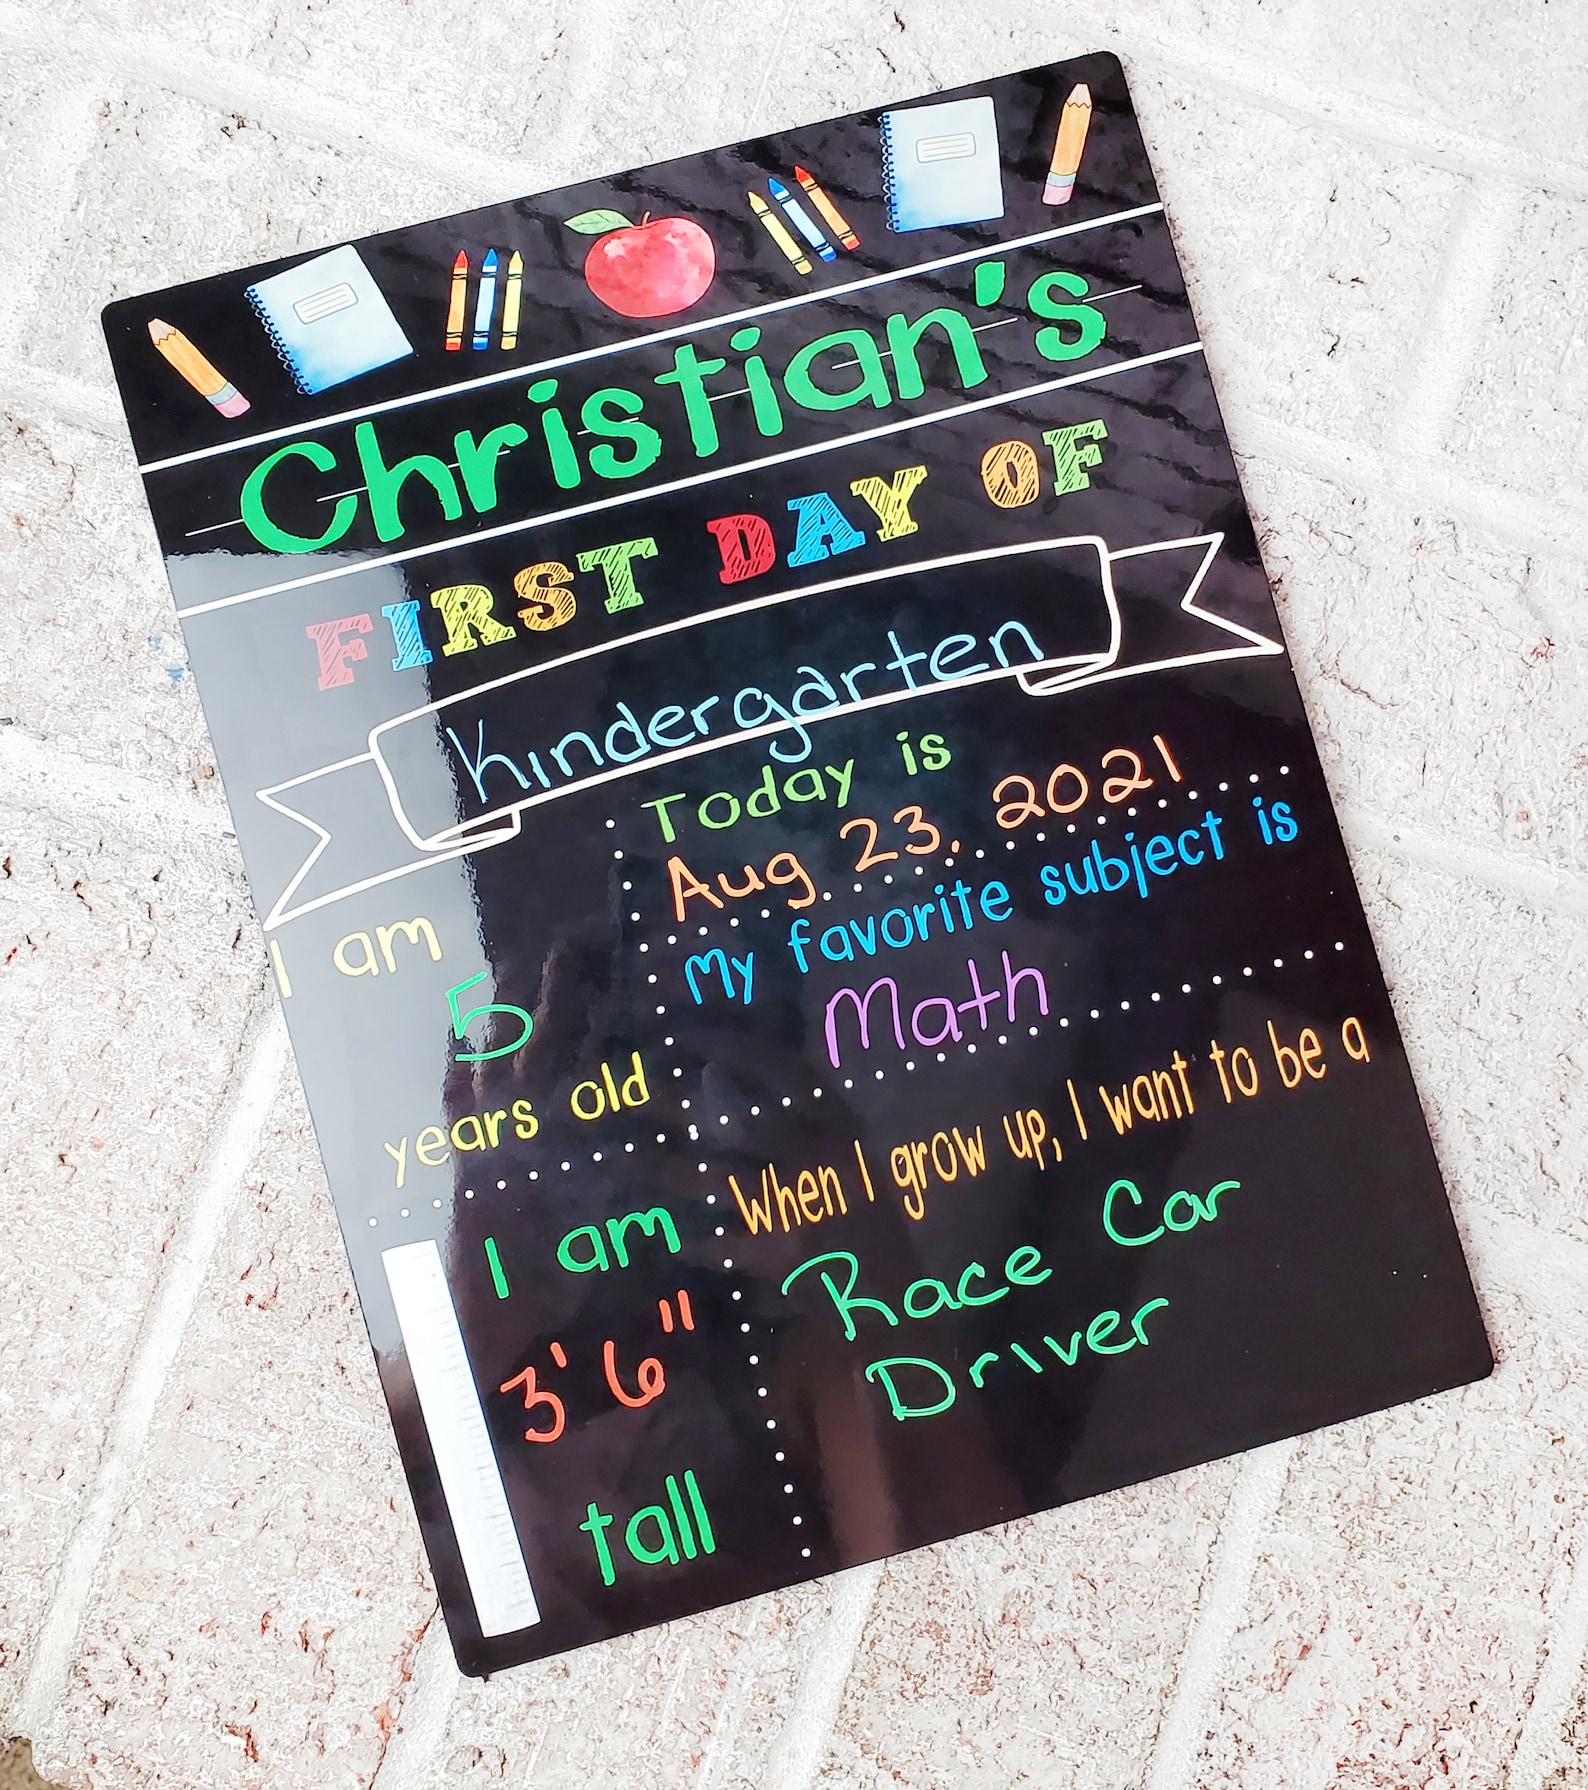 Christian's
FIRST DAY OF
Kindergarten
I am
5
years old
I am
3'6"
tall
Today is
Aug 23, 2021
My favorite subject is
Math
When I grow up, I want to be a
Race Car
Driver